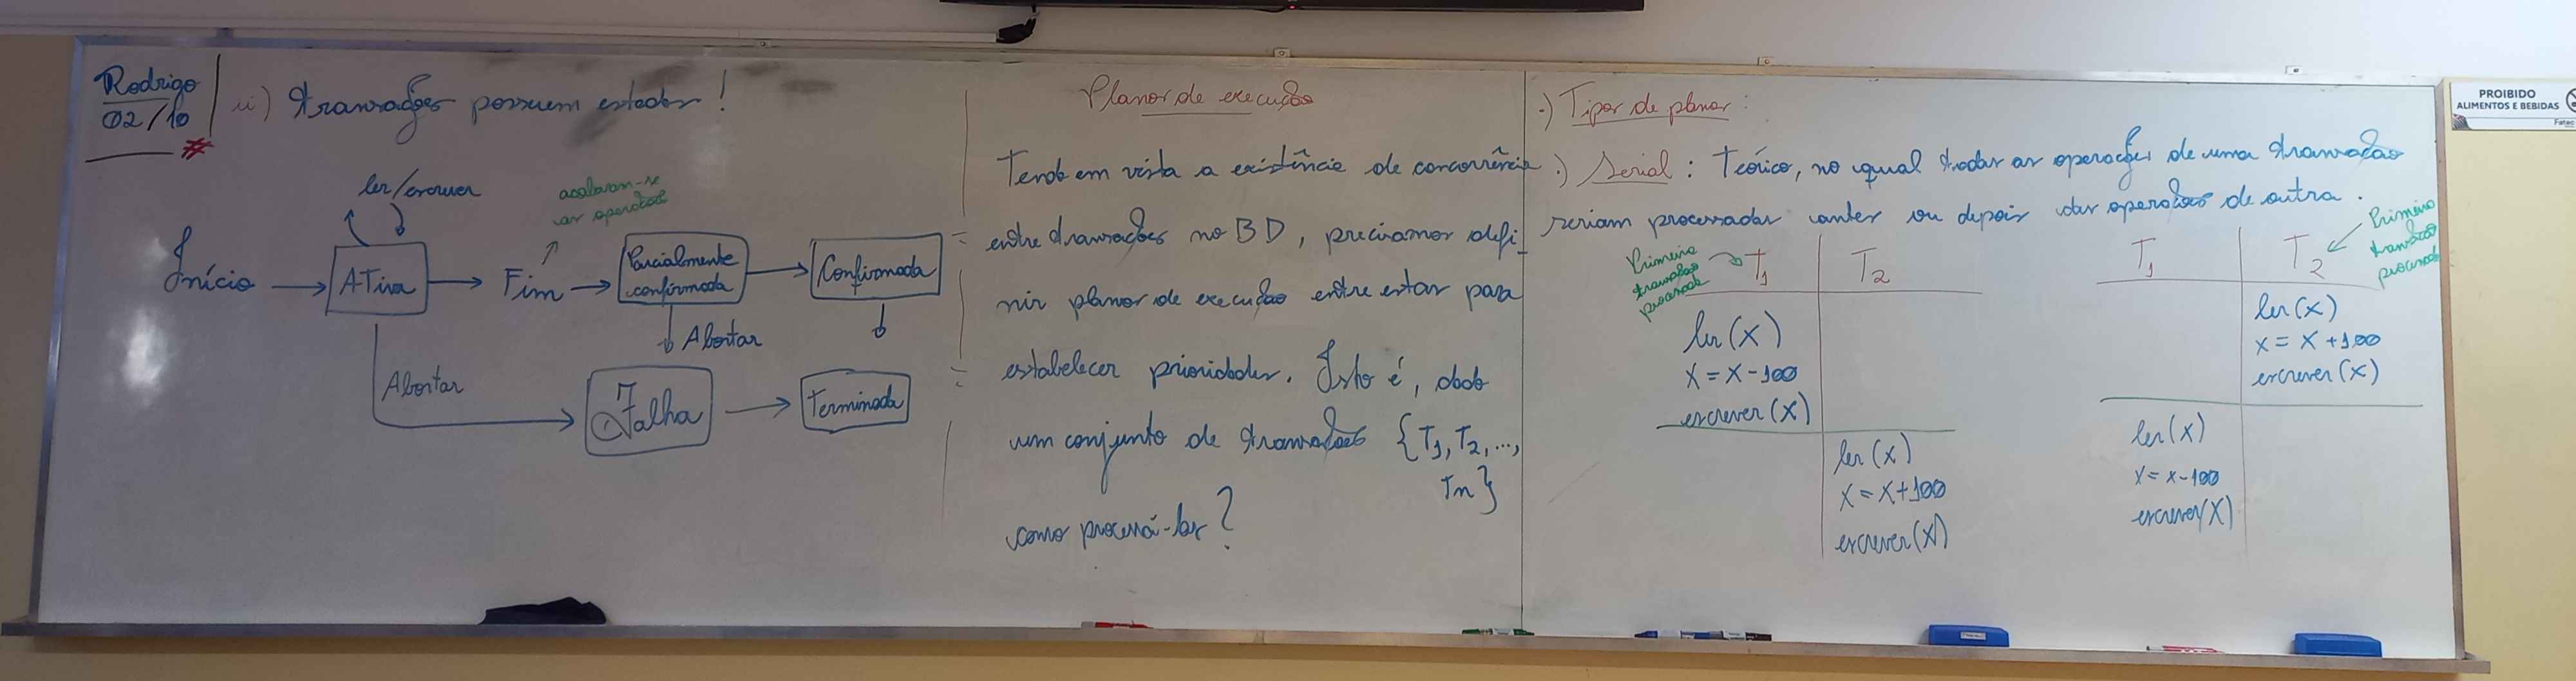 Rodrigo
02/10
#
ii) Transações possuem estados!
ler/escrever
acabaram-se
as operações
Início
ATiva
Fim
Parcialmente
confirmada
Confirmada
Abortar
Abortar
Falha
Terminada
Planos de execução
Tendo em vista a existência de concorrência
entre transações no BD, precisamos defi-
nir planos de execução entre estas para
estabelecer prioridades. Isto é, dado
um conjunto de transações {T1, T2, ...,
Tn}
como processá-las?
.) Tipos de planos:
.) Serial: Teórico, no qual todas as operações de uma transação
seriam processadas antes ou depois das operações de outra.
Primeira
transação
processada
T1
T2
ler(X)
X = X - 100
escrever(X)
ler(X)
X = X + 100
escrever(X)
T1
T2
Primeira
transação
processada
ler(X)
X = X + 100
escrever(X)
ler(X)
X = X - 100
escrever(X)
PROIBIDO
ALIMENTOS E BEBIDAS
Fatec